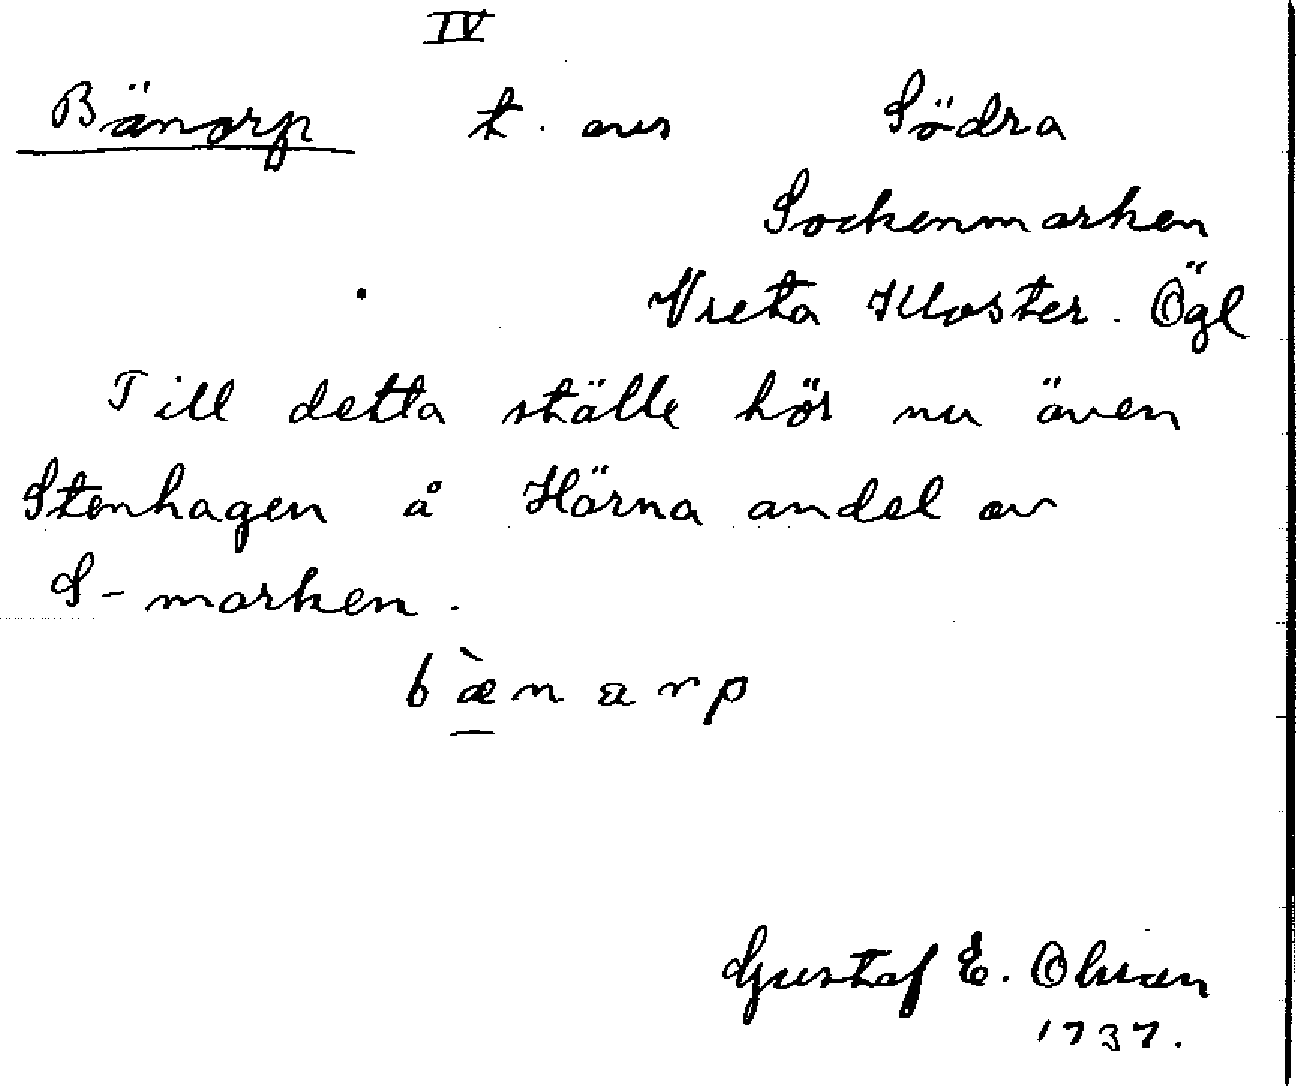 IV
Bänarp t. avs Södra
Sockenmarken
Vreta Kloster. Ögl
Till detta ställe hör nu även
Stenhagen å Härna andel av
S-marken.
bæ̀narp
Gustaf E. Olsson
1737.